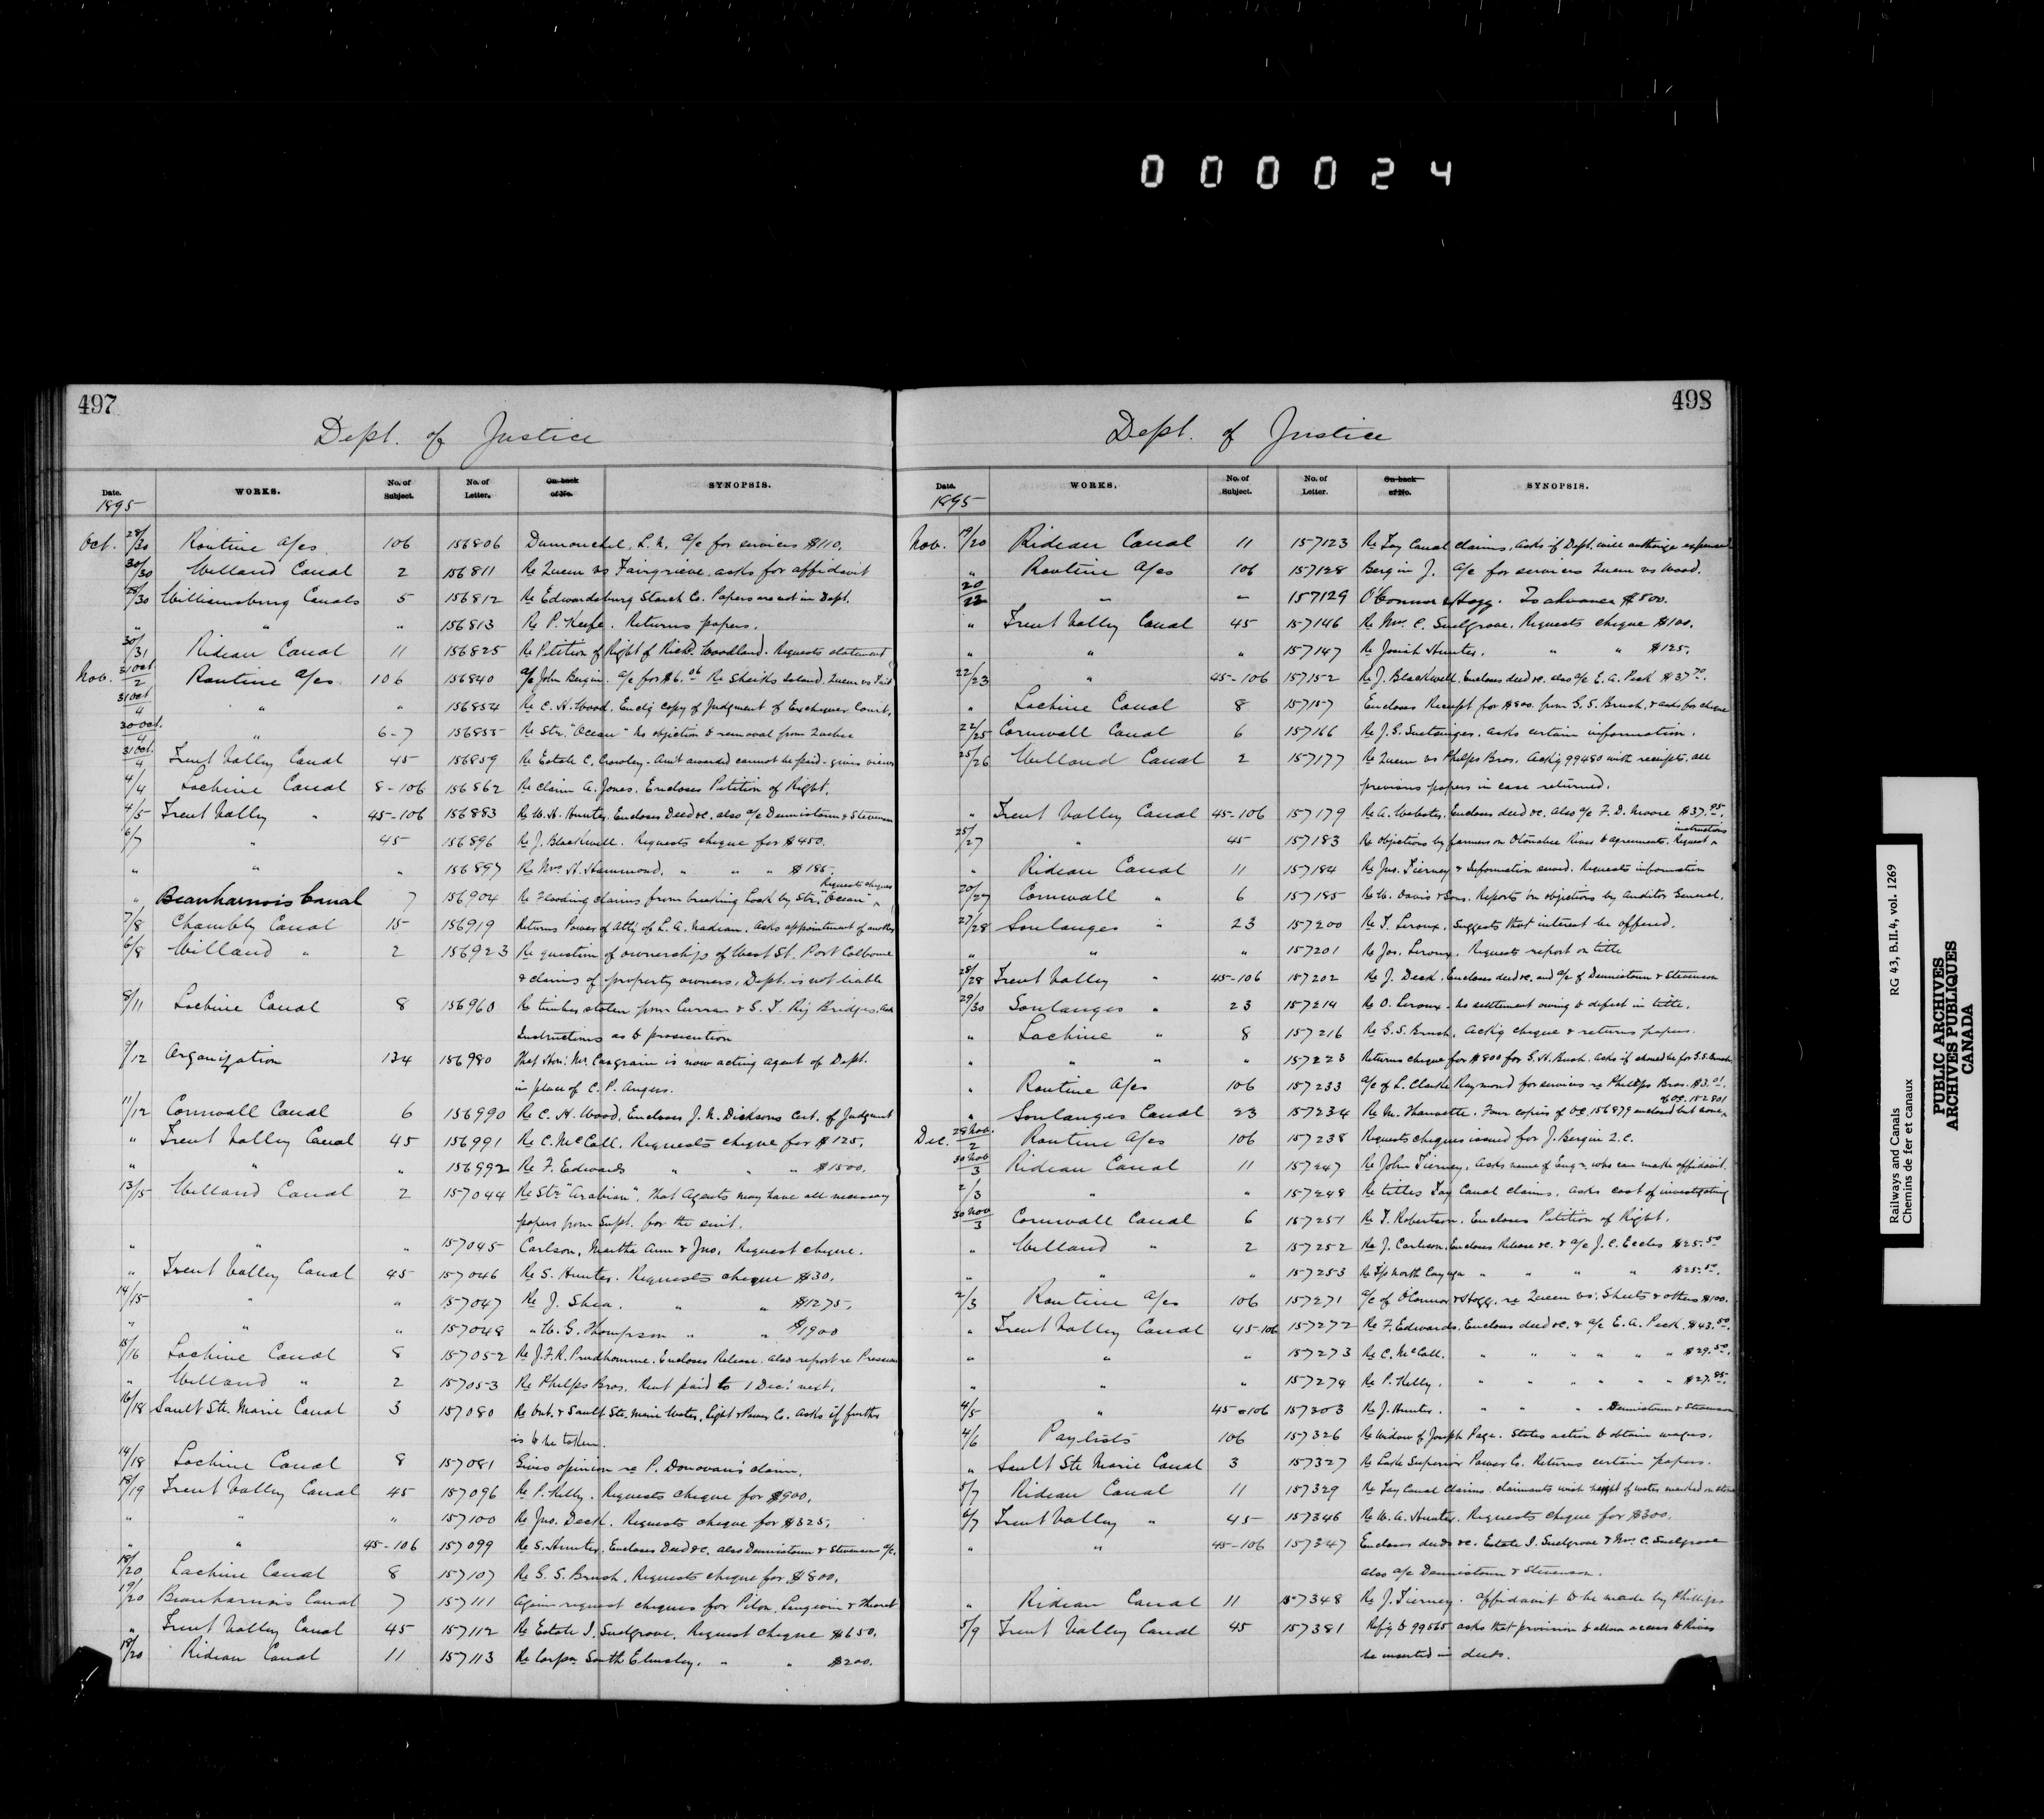 000024
497
Dept. of Justice
Date. WORKS. No. of Subject. No. of Letter. On back of No. SYNOPSIS.
1895
Oct. 28/30 Routine a/cs. 106 156806 Dumouchel, L.N. a/c for services $110.
30/30 Welland Canal 2 156811 Re Queen vs Fairgrieve. asks for affidavit
28/30 Williamsburg Canals 5 156812 Re Edwardsburg Starch Co. Papers are not in Dept.
" " " 156813 Re P. Keefe. Returns papers.
30/31 Rideau Canal 11 156825 Re Petition of Right of Richd. Woodland. Requests statement
Nov. 31 Oct/2 Routine a/cs 106 156840 a/c John Bergin. a/c for $6.06 Re Sheiks Island. Queen vs
31 Oct/4 " " 156854 Re C. H. Wood. Enclg copy of Judgment of Exchequer Court.
30 Oct./4 " 6-7 156855 Re Str. "Ocean" No objection to removal from Quebec
31 Oct./4 Trent Valley Canal 45 156859 Re Estate C. Crowley. Amt awarded cannot be paid. gives views
4/4 Lachine Canal 8-106 156862 Re claim A. Jones. Encloses Petition of Right.
4/5 Trent Valley " 45-106 156883 Re W. H. Hunter. Encloses Deed &c. also a/c Dennistoun & Stevenson
6/7 " 45 156896 Re J. Blackwell. Requests cheque for $450.
" " " 156897 Re Mrs H. Hammond. " " " $185.
" Beauharnois Canal 7 156904 Re Flooding claims from breaking Lock by Str. "Ocean" ^ Requests cheques
7/8 Chambly Canal 15 156919 Returns Power of Atty of L. A. Nadeau. Asks appointment of another
6/8 Welland " 2 156923 Re question of ownership of West St. Port Colborne
& claims of property owners. Dept. is not liable
8/11 Lachine Canal 8 156960 Re timber stolen from Curran & G. T. Ry Bridges. Ask
Instructions as to prosecution
9/12 Organization 134 156980 That Hon. Mr. Casgrain is now acting agent of Dept.
in place of C. P. Angers.
11/12 Cornwall Canal 6 156990 Re C. H. Wood. Encloses J. N. Dicksons Cert. of Judgment
" Trent Valley Canal 45 156991 Re C. McCall. Requests cheque for $125.
" " " 156992 Re F. Edwards " " " $1500.
13/15 Welland Canal 2 157044 Re Str "Arabian". That Agents may have all necessary
papers from Supt. for the suit.
" " " 157045 Carlson, Martha Ann & Jno. Request cheque.
" Trent Valley Canal 45 157046 Re S. Hunter. Requests cheque $30.
14/15 " " 157047 Re J. Shea. " " $1275.
" " " 157048 " W. G. Thompson " " $1900
15/16 Lachine Canal 8 157052 Re J. F. R. Prudhomme. Encloses Release. also report re
" Welland " 2 157053 Re Phelps Bros. Rent paid to 1 Dec. next.
16/18 Sault Ste. Marie Canal 3 157080 Re Ont. & Sault Ste. Marie Water, Light & Power Co. asks if further
is to be taken.
14/18 Lachine Canal 8 157081 Gives opinion re P. Donovan's claim.
18/19 Trent Valley Canal 45 157096 Re P. Kelly. Requests cheque for $900.
" " " 157100 Re Jno. Deck. Requests cheque for $325.
" " 45-106 157099 Re S. Hunter. Encloses Deed &c. also Dennistoun & Stevensons a/c.
18/20 Lachine Canal 8 157107 Re G. S. Brush. Requests cheque for $800.
19/20 Beauharnois Canal 7 157111 Again request cheques for Pilon, Langevin & Theoret
" Trent Valley Canal 45 157112 Re Estate I. Snelgrove. Request cheque $650.
18/20 Rideau Canal 11 157113 Re Corpn South Elmsley. " " $200.
498
Dept. of Justice
Date. WORKS. No. of Subject. No. of Letter. On back of No. SYNOPSIS.
1895
Nov. 19/20 Rideau Canal 11 157123 Re Tay Canal claims. Asks if Dept. will authorize expense
" Routine a/cs 106 157128 Bergin J. a/c for services Queen vs Wood.
20/22 " " 157129 O'Connor & Hogg. To advance $500.
" Trent Valley Canal 45 157146 Re Mrs. C. Snelgrove. Requests cheque $100.
" " " 157147 Re Josiah Hunter. " " $125.
22/23 " 45-106 157152 Re J. Blackwell. Encloses deed &c. also a/c E. A. Peck $37.70.
" Lachine Canal 8 157157 Encloses Receipt for $800. from G. S. Brush. & asks for cheque
22/25 Cornwall Canal 6 157166 Re J. G. Snetsinger. asks certain information.
25/26 Welland Canal 2 157177 Re Queen vs Phelps Bros. Ackg 99480 with receipts. all
previous papers in case returned.
" Trent Valley Canal 45-106 157179 Re A. Webster. Encloses deed &c. also a/c F. D. Moore $37.95.
25/27 " 45 157183 Re objections by farmers on Otonabee River to agreements. Request ^ instructions
" Rideau Canal 11 157184 Re Jas. Tierney & Information sword. Requests information
20/27 Cornwall " 6 157185 Re W. Davis & Sons. Reports on objections by Auditor General.
27/28 Soulanges " 23 157200 Re T. Leroux. Suggests that interest be offered.
" " " 157201 Re Jos. Leroux. Requests report on title
28/28 Trent Valley " 45-106 157202 Re J. Deck. Encloses deed &c. and a/c of Dennistoun & Stevenson
29/30 Soulanges " 23 157214 Re O. Leroux. No settlement owing to defect in title.
" Lachine " 8 157216 Re G. S. Brush. Ackg cheque & returns papers.
" " " " 157223 Returns cheque for $800 for G. H. Brush. Asks if should be for G. S. Brush
" Routine a/cs 106 157233 a/c of L. Clarke Raymond for services re Phelps Bros. $3.01.
" Soulanges Canal 23 157234 Re M. Four copies of O.C. 156879 enclosed but none ^ of O.C. 152801
Dec. 28 Nov./2 Routine a/cs 106 157238 Requests cheques issued for J. Bergin Q.C.
30 Nov/3 Rideau Canal 11 157247 Re John Tierney. Asks name of Engr. who can make affidavit.
2/3 " " 157248 Re titles Tay Canal claims. asks cost of investigating
30 Nov/3 Cornwall Canal 6 157251 Re T. Robertson. Encloses Petition of Right.
" Welland " 2 157252 Re J. Carlson. Encloses Release &c. & a/c J. C. Eccles $25.50
" " " 157253 Re T/p North Cayuga " " " " $25.50.
2/3 Routine a/cs 106 157271 a/c of O'Connor & Hogg. re Queen vs. Sheets & others $100.
" Trent Valley Canal 45-106 157272 Re F. Edwards. Encloses deed &c. & a/c E. A. Peck. $43.50.
" " " 157273 Re C. McCall. " " " " " " $29.50.
" " " 157274 Re P. Kelly. " " " " " " $27.85.
4/5 " 45-106 157303 Re J. Hunter. " " " " Dennistoun & Stevenson
4/6 Paylists 106 157326 Re Widow of Joseph Page. States action to obtain wages.
" Sault Ste Marie Canal 3 157327 Re Lake Superior Power Co. Returns certain papers.
5/7 Rideau Canal 11 157329 Re Tay Canal Claims. claimants wish height of water marked on stone
6/7 Trent Valley " 45 157346 Re W. A. Hunter. Requests cheque for $300.
" " 45-106 157347 Encloses deeds &c. Estate I. Snelgrove & Mrs. C. Snelgrove
also a/c Dennistoun & Stevenson.
" Rideau Canal 11 157348 Re J. Tierney. affidavit to be made by Phillips
5/9 Trent Valley Canal 45 157381 Refg to 99565 asks that provision to allow access to River
be inserted in deeds.
Railways and Canals RG 43, B.II.4, vol. 1269
Chemins de fer et canaux
PUBLIC ARCHIVES
ARCHIVES PUBLIQUES
CANADA